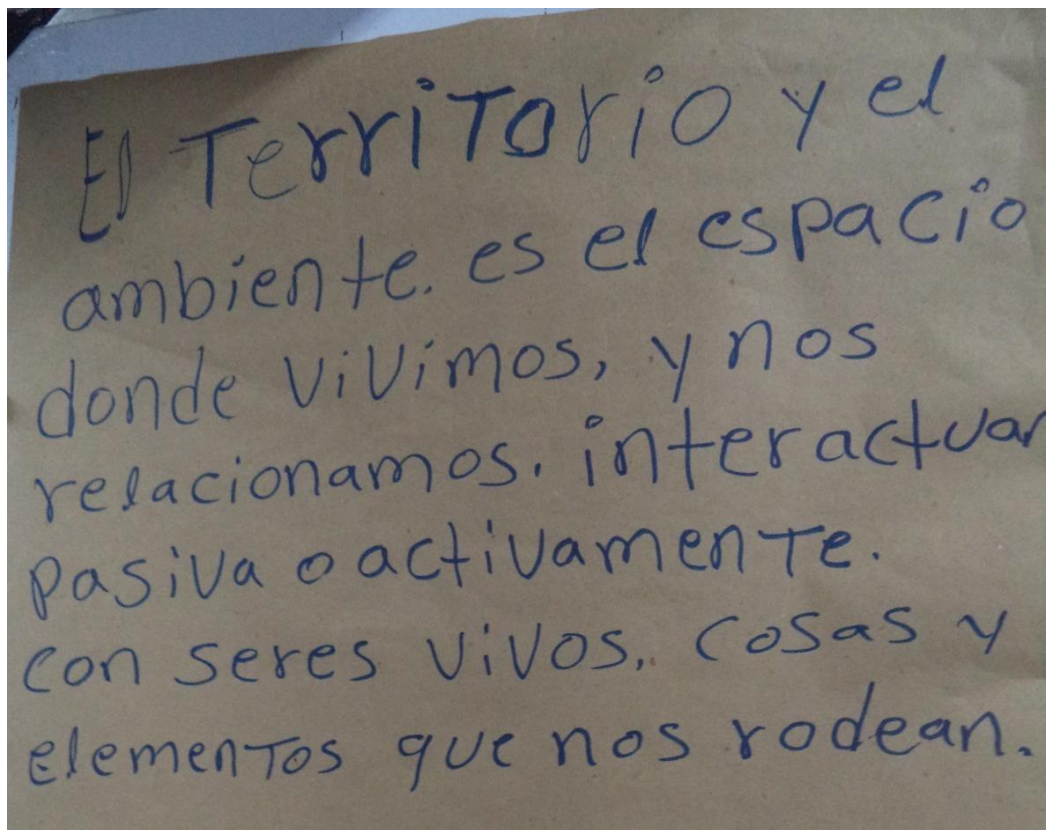 El Territorio y el
ambiente. es el espacio
donde vivimos, y nos
relacionamos. interactuar
pasiva o activamente.
con seres vivos, cosas y
elementos que nos rodean.